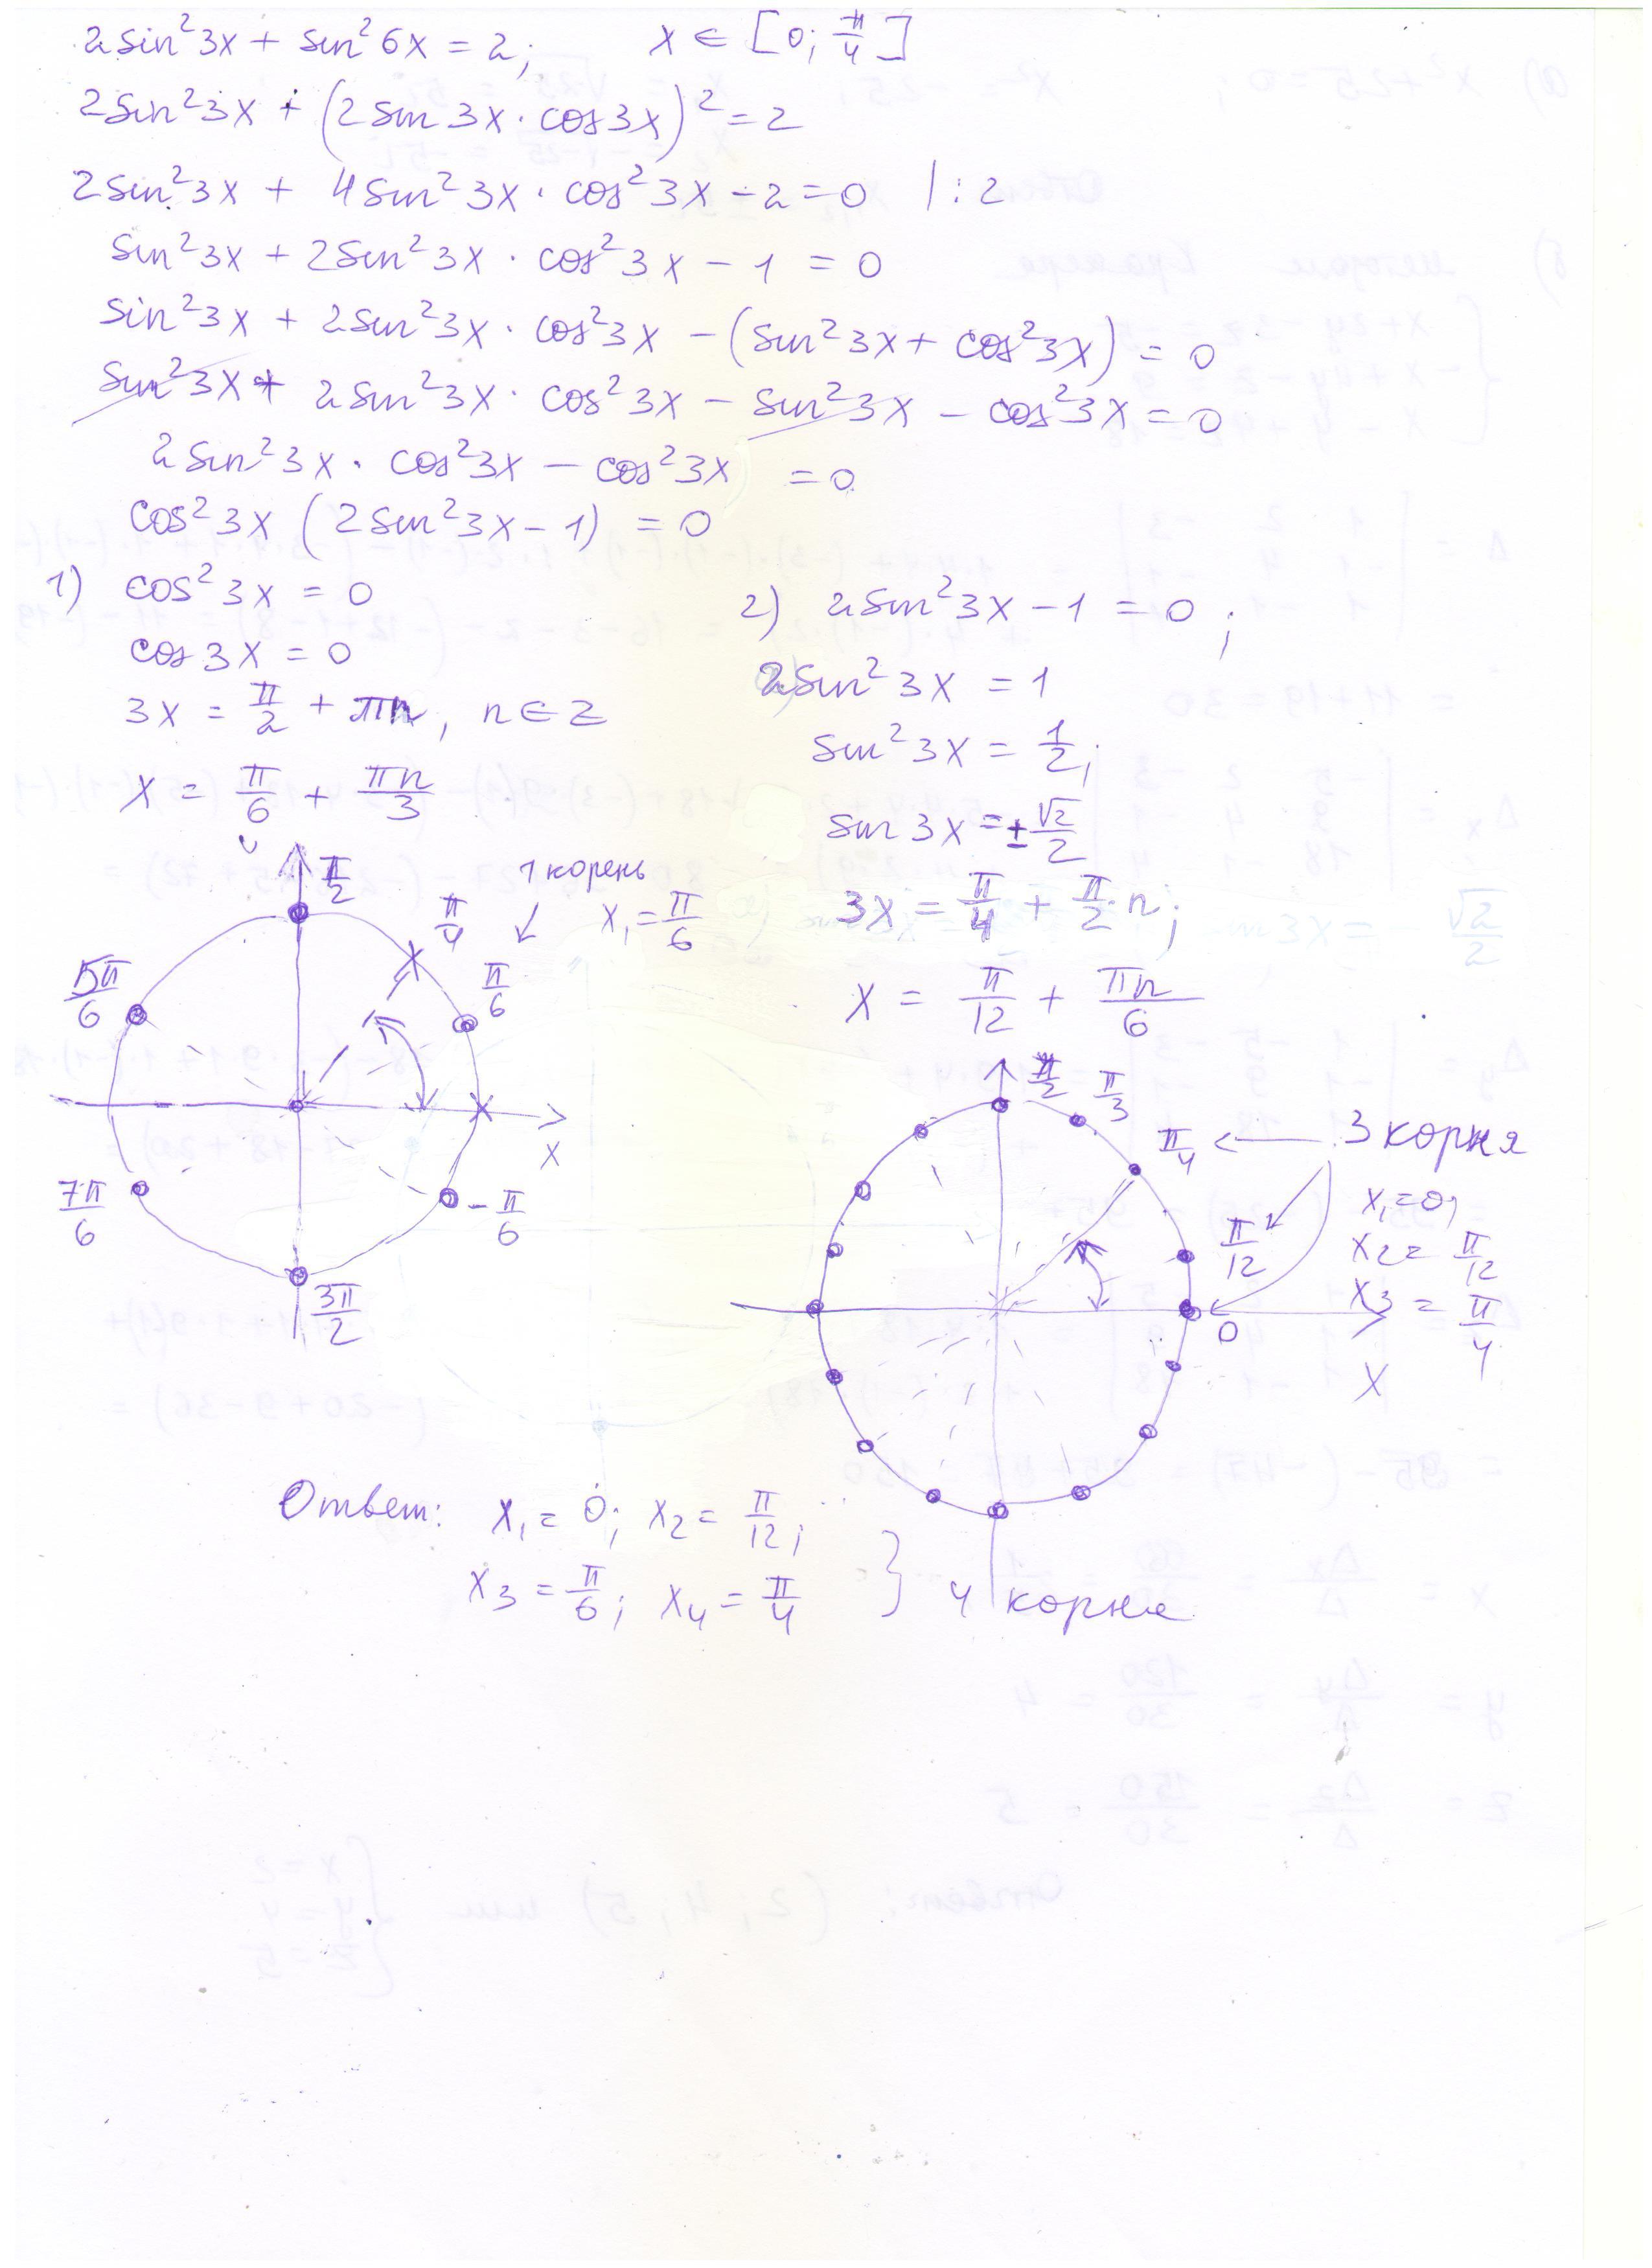 2sin²3x + sin²6x = 2; x ∈ [0; π/4]
2sin²3x + (2sin3x · cos3x)² = 2
2sin²3x + 4sin²3x · cos²3x - 2 = 0 | : 2
sin²3x + 2sin²3x · cos²3x - 1 = 0
sin²3x + 2sin²3x · cos²3x - (sin²3x + cos²3x) = 0
sin²3x + 2sin²3x · cos²3x - sin²3x - cos²3x = 0
2sin²3x · cos²3x - cos²3x = 0
cos²3x (2sin²3x - 1) = 0
1) cos²3x = 0
cos3x = 0
3x = π/2 + πn, n ∈ Z
x = π/6 + πn/3
2) 2sin²3x - 1 = 0;
2sin²3x = 1
sin²3x = 1/2;
sin3x = ±√2/2
3x = π/4 + π/2·n;
x = π/12 + πn/6
π/2
π/4
1 корень
x₁ = π/6
5π/6
π/6
x
7π/6
-π/6
3π/2
π/2
π/3
π/4
3 корня
x₁ = 0;
π/12
x₂ = π/12
x₃ = π/4
0
x
Ответ: x₁ = 0; x₂ = π/12;
x₃ = π/6; x₄ = π/4 } 4 корня